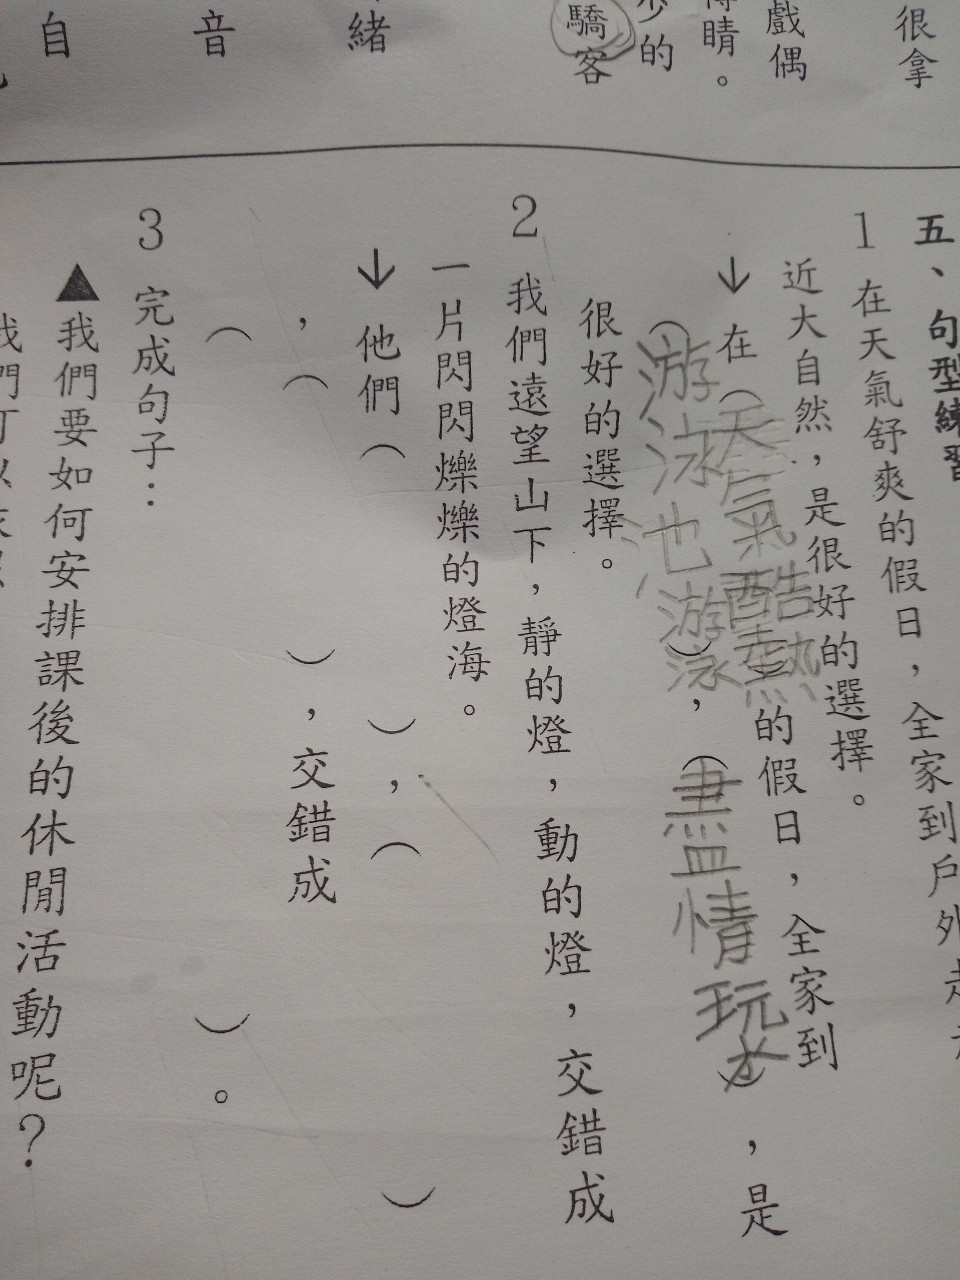 很拿
戲偶
睛。
的
驕客
緒
音
自
五、句型練習
1 在天氣舒爽的假日，全家到戶外
近大自然，是很好的選擇。
↓在（天氣酷熱）的假日，全家到
（游泳池游泳），（盡情玩水），是
很好的選擇。
2 我們遠望山下，靜的燈，動的燈，交錯成
一片閃閃爍爍的燈海。
↓他們（　　），（　　）
，（　　），交錯成
（　　）。
3 完成句子：
▲我們要如何安排課後的休閒活動呢？